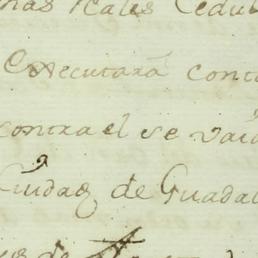 Reales Cedul
Executara cont
contra el se va
Ciudad de Guadal
de